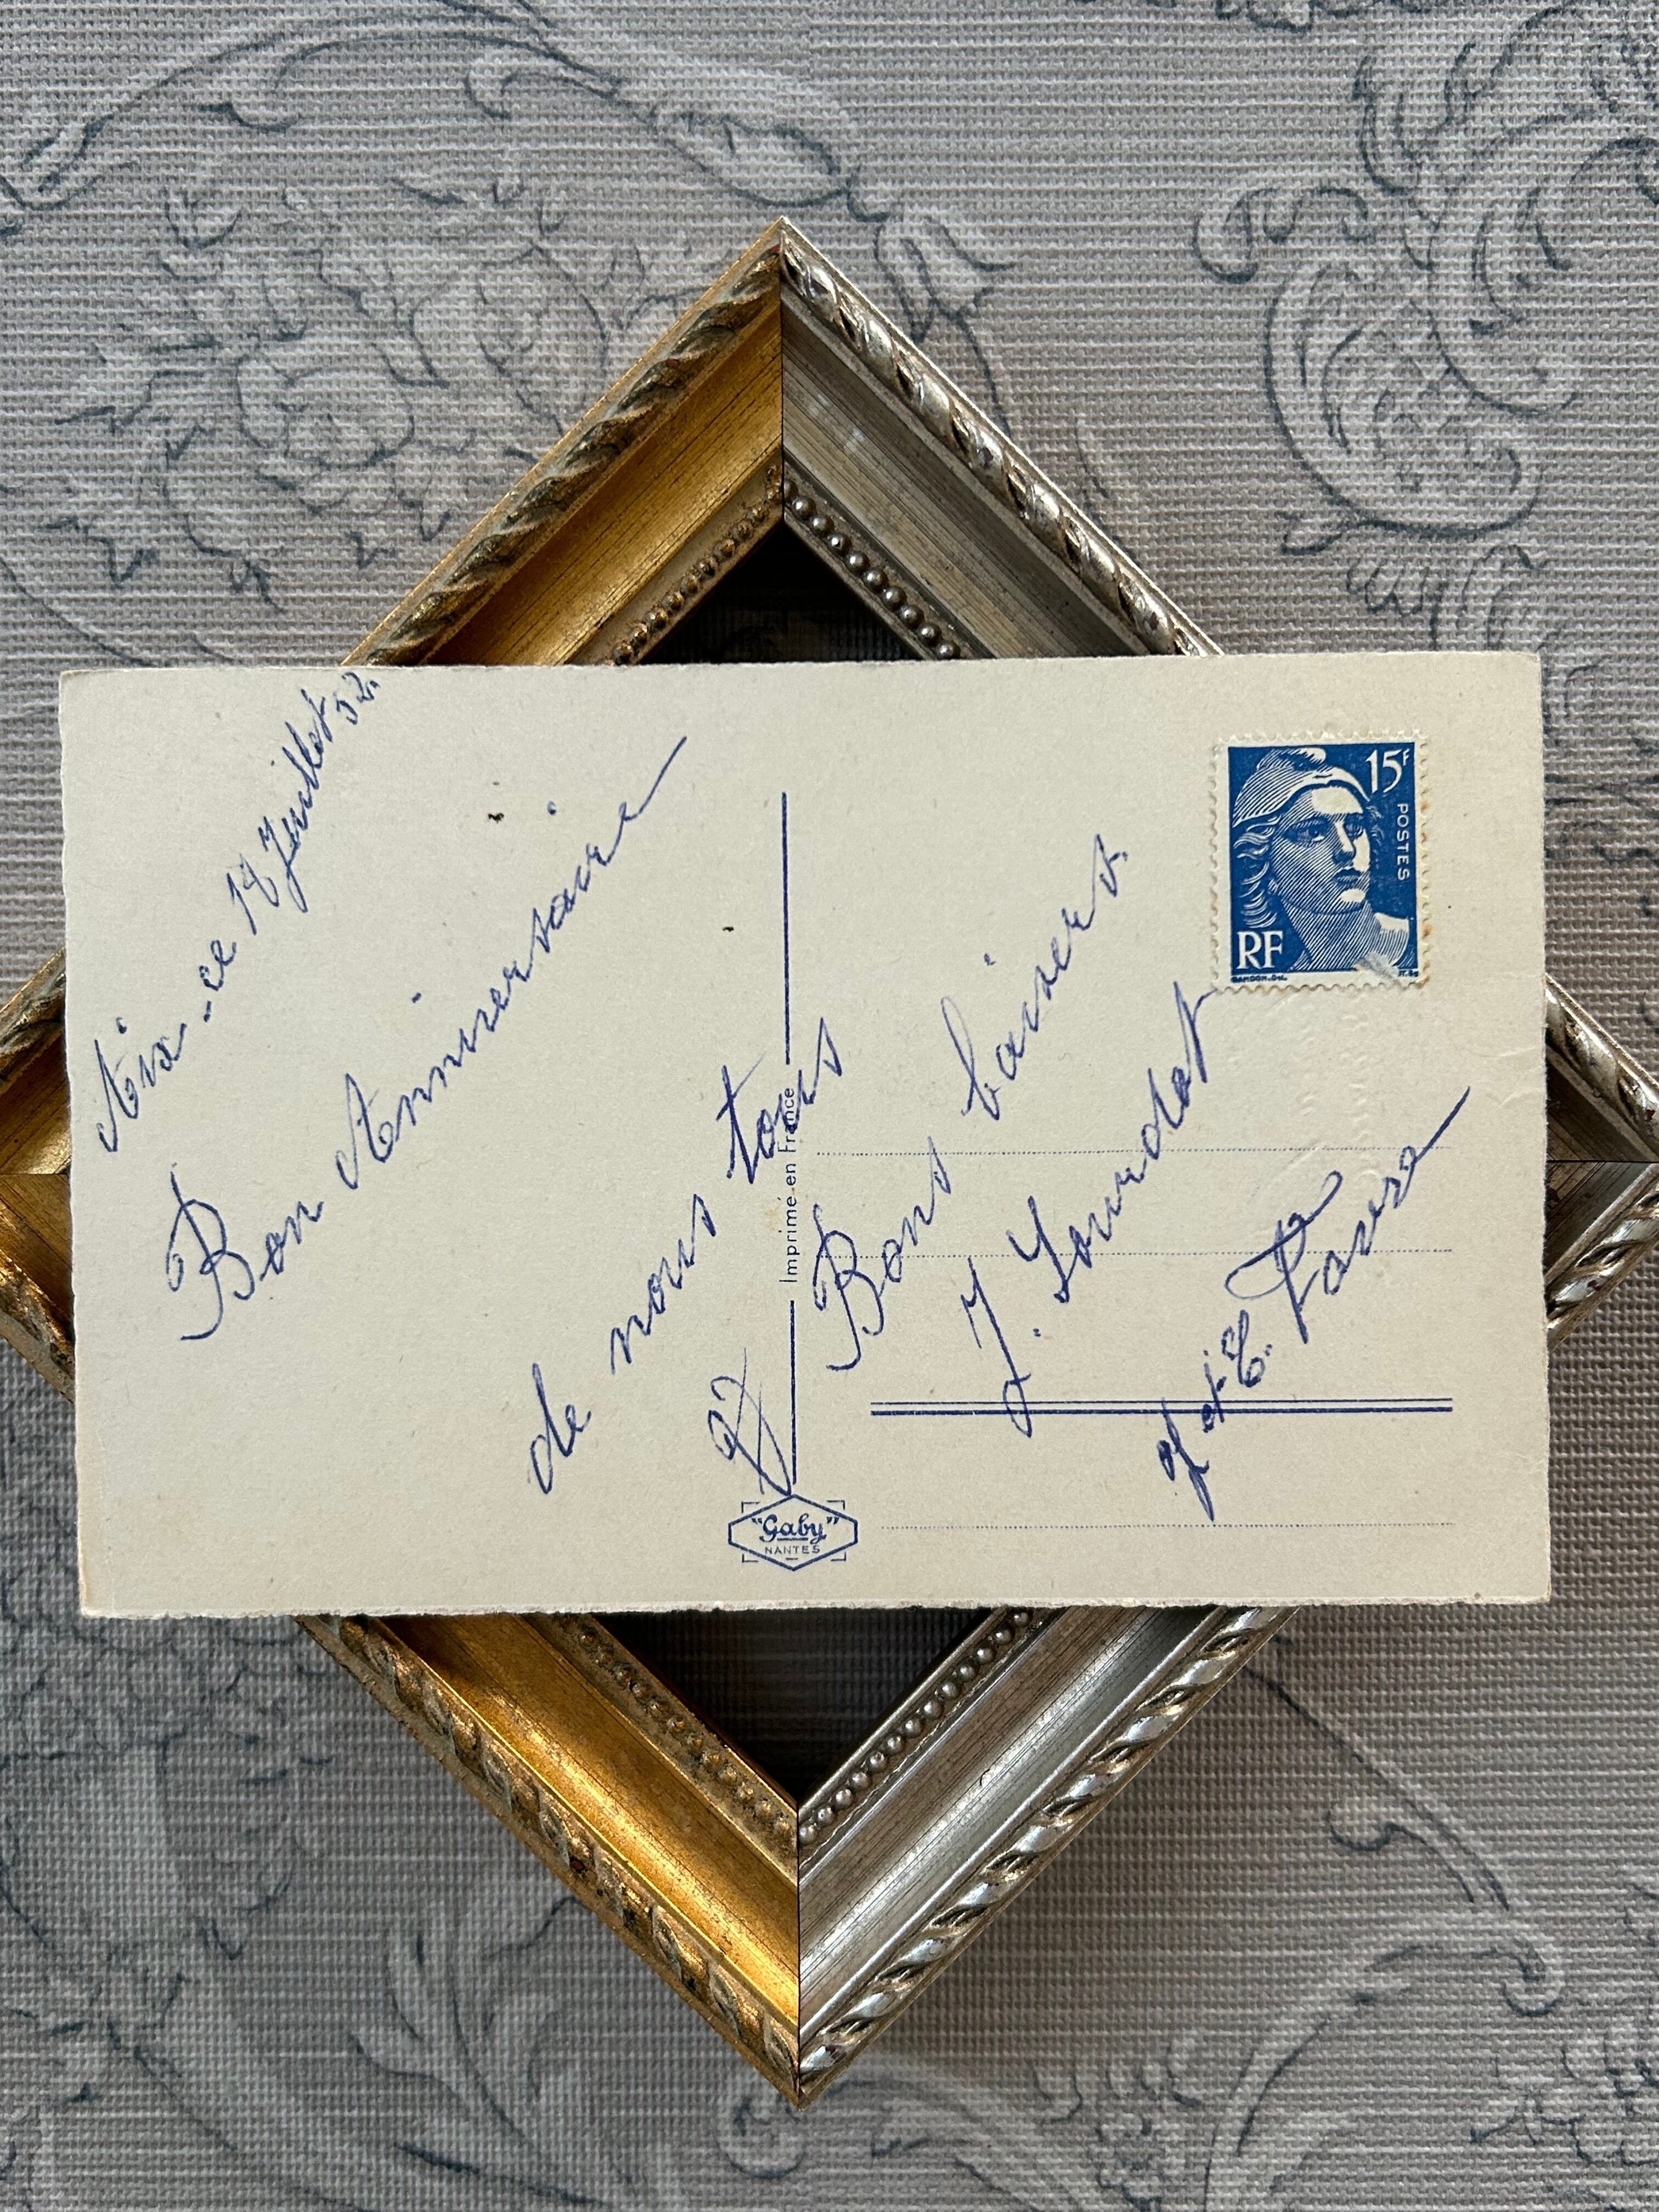 Aix - ce 18 Juillet 52.
Bon Anniversaire
de nous tous
Bons baisers.
J. Lourdat
et E.
15F
POSTES
RF
GANDON-DEL.
Imprimé en France
"Gaby"
NANTES